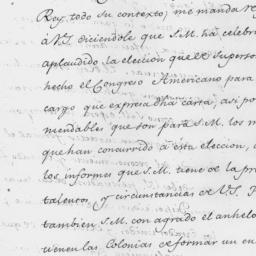 Rey, todo su contexto; me manda re
à V.S. diciendole que S.M. hà celebr
aplaudido la eleccion que de su person
hecho el Congreso Americano para
cargo que expresa dha carta, asi po
mendables que son para S.M. los m
que han concurrido á esta eleccion,
los informes que S.M. tiene de la pr
talentos, y circunstancias de V.S.
tambien S.M. con agrado el anhelo
tienen las Colonias de formar un en